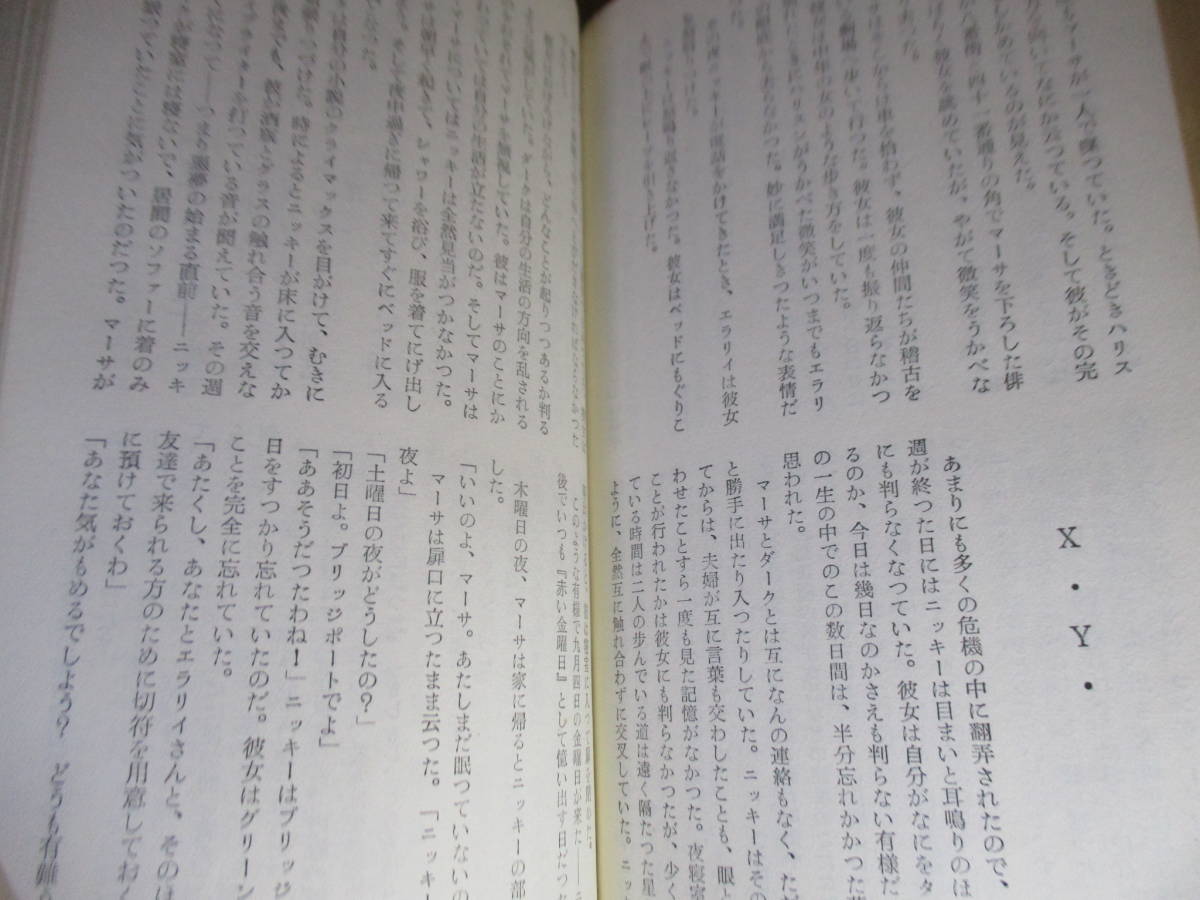 もマーサが一人で座つていた。ときどきハリス
の方を向いてなにか云つている。そして彼がその完
しかめているのが見えた。
四十一番通りの角でマーサを下ろした俳
彼女を眺めていたが、やがて微笑をうかべな
あつた。
それからは車を拾わず、彼女の仲間たちが稽古を
劇場へ歩いて行つた。彼女は一度も振り返らなかつ
彼女は中年の女のような歩き方をしていた。
したときにハリスンがうかべた微笑がいつまでもエラリ
眼前から去らなかつた。妙に満足しきつたような表情だ
電話をかけてきたとき、エラリイは彼女
返さなかつた。彼女はベッドにもぐりこ
X・Y・
あまりにも多くの危機の中に翻弄されたので、
週が終つた日にはニッキーは目まいと耳鳴りのほ
にも判らなくなつていた。彼女は自分がなにをタ
るのか、今日は幾日なのかさえも判らない有様だ
の一生の中でのこの数日間は、半分忘れかかつた
思われた。
マーサとダークとは互になんの連絡もなく、ただ
と勝手に出たり入つたりしていた。ニッキーはその
てからは、夫婦が互に言葉も交わしたことも、眼と
わせたことすら一度も見た記憶がなかつた。夜寝室
ことが行われたかは彼女にも判らなかつたが、少く
ている時間は二人の歩んでいる道は遠く隔たつた星
ように、全然互に触れ合わずに交叉していた。ニッ
どんなことが起りつつあるか判る
ダークは自分の生活の方向を乱される
マーサを無視していた。彼はマーサのことにか
いては自分の生活が立たないのだ。そしてマーサは
マーサについてはニッキーは全然見当がつかなかつた。
は朝早く起きて、シャワーを浴び、服を着てにげ出し
そして夜中過ぎに帰つて来てすぐにベッドに入る
だつた。
は自分の小説のクライマックスを目がけて、むきに
りつづけた。時によるとニッキーが床に入つてか
後までも、彼が酒瓶とグラスの触れ合う音を交えな
プライターを打つている音が聞えていた。その週
になつて――、つまり悪夢の始まる直前――ニッキ
が寝室には寝ないで、居間のソファーに着のみ
眠つていたことに気がついたのだつた。マーサが
このような有様で九月四日の金曜日が来た――ニ
後でいつも『赤い金曜日』として憶い出す日だつた
木曜日の夜、マーサは家に帰るとニッキーの部
した。
「いいのよ、マーサ。あたしまだ眠つていないの
マーサは扉口に立つたまま云つた。「ニッキー
夜よ」
「土曜日の夜がどうしたの？」
「初日よ。ブリッジポートでよ」
「ああそうだつたわね！」ニッキーはブリッジ
日をすつかり忘れていたのだ。彼女はグリーン
ことを完全に忘れていた。
「あたくし、あなたとエラリイさんと、そのほ
友達で来られる方のために切符を用意しておく
に預けておくわ」
「あなた気がもめるでしよう？　どうも有難う